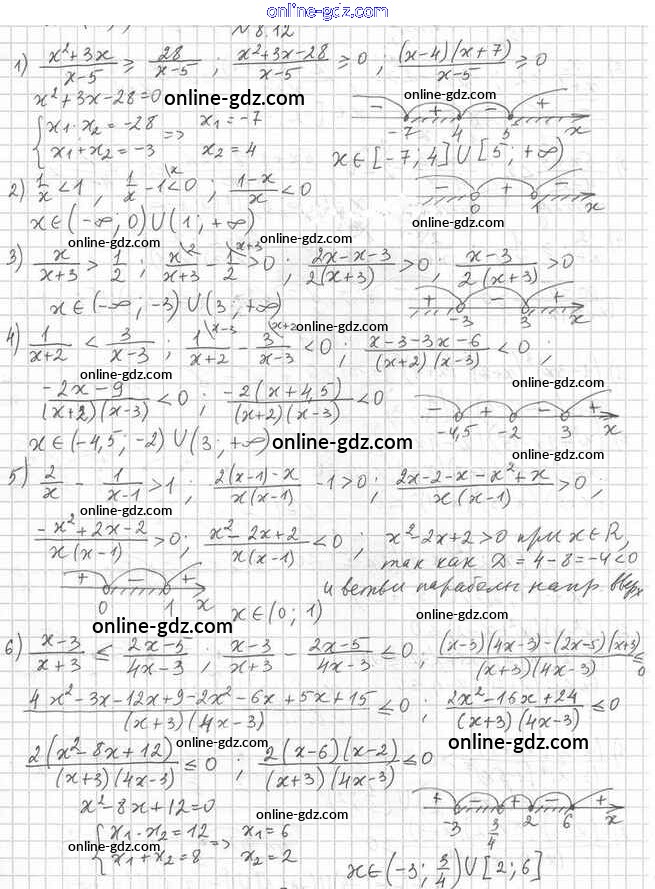 online-gdz.com
N 8.12
1) (x²+3x)/(x-5) ≥ 28/(x-5) ; (x²+3x-28)/(x-5) ≥ 0 ; ((x-4)(x+7))/(x-5) ≥ 0
x²+3x-28=0 online-gdz.com - + - +
{ x₁·x₂=-28 => x₁=-7 -7 4 5 x
x₁+x₂=-3 x₂=4 x∈[-7; 4]∪[5; +∞)
online-gdz.com
2) 1/x<1, 1/x - 1\x<0 ; (1-x)/x<0 - + -
0 1 x
x∈(-∞; 0)∪(1; +∞)
online-gdz.com online-gdz.com
3) x/(x+3) > 1/2 ; x\2/(x+3) - 1\x+3/2 >0 ; (2x-x-3)/(2(x+3)) >0 ; (x-3)/(2(x+3)) >0
x∈(-∞, -3)∪(3; +∞) + - +
-3 3 x
4) 1/(x+2) < 3/(x-3) ; 1\x-3/(x+2) - 3\x+2/(x-3) <0 ; (x-3-3x-6)/((x+2)(x-3)) <0 ;
online-gdz.com
online-gdz.com online-gdz.com
(-2x-9)/((x+2)(x-3)) <0 ; (-2(x+4,5))/((x+2)(x-3)) <0
- + - +
-4,5 -2 3 x
x∈(-4,5; -2)∪(3; +∞) online-gdz.com
online-gdz.com
5) 2/x - 1/(x-1) >1 ; (2(x-1)-x)/(x(x-1)) -1>0 ; (2x-2-x-x²+x)/(x(x-1)) >0 ;
online-gdz.com
(-x²+2x-2)/(x(x-1)) >0 ; (x²-2x+2)/(x(x-1)) <0 ; x²-2x+2>0 при x∈R,
так как D=4-8=-4<0
+ - + и ветви параболы напр. вверх
0 1 x x∈(0; 1)
online-gdz.com online-gdz.com
6) (x-3)/(x+3) ≤ (2x-5)/(4x-3) ; (x-3)/(x+3) - (2x-5)/(4x-3) ≤0 ; ((x-3)(4x-3)-(2x-5)(x+3))/((x+3)(4x-3)) ≤ 0
(4x²-3x-12x+9-2x²-6x+5x+15)/((x+3)(4x-3)) ≤0 ; (2x²-16x+24)/((x+3)(4x-3)) ≤0
(2(x²-8x+12))/((x+3)(4x-3)) ≤0 ; (2(x-6)(x-2))/((x+3)(4x-3)) ≤0
online-gdz.com online-gdz.com
x²-8x+12=0 + - + - +
online-gdz.com -3 3/4 2 6 x
{ x₁·x₂=12 => x₁=6
x₁+x₂=8 x₂=2 x∈(-3; 3/4)∪[2; 6]